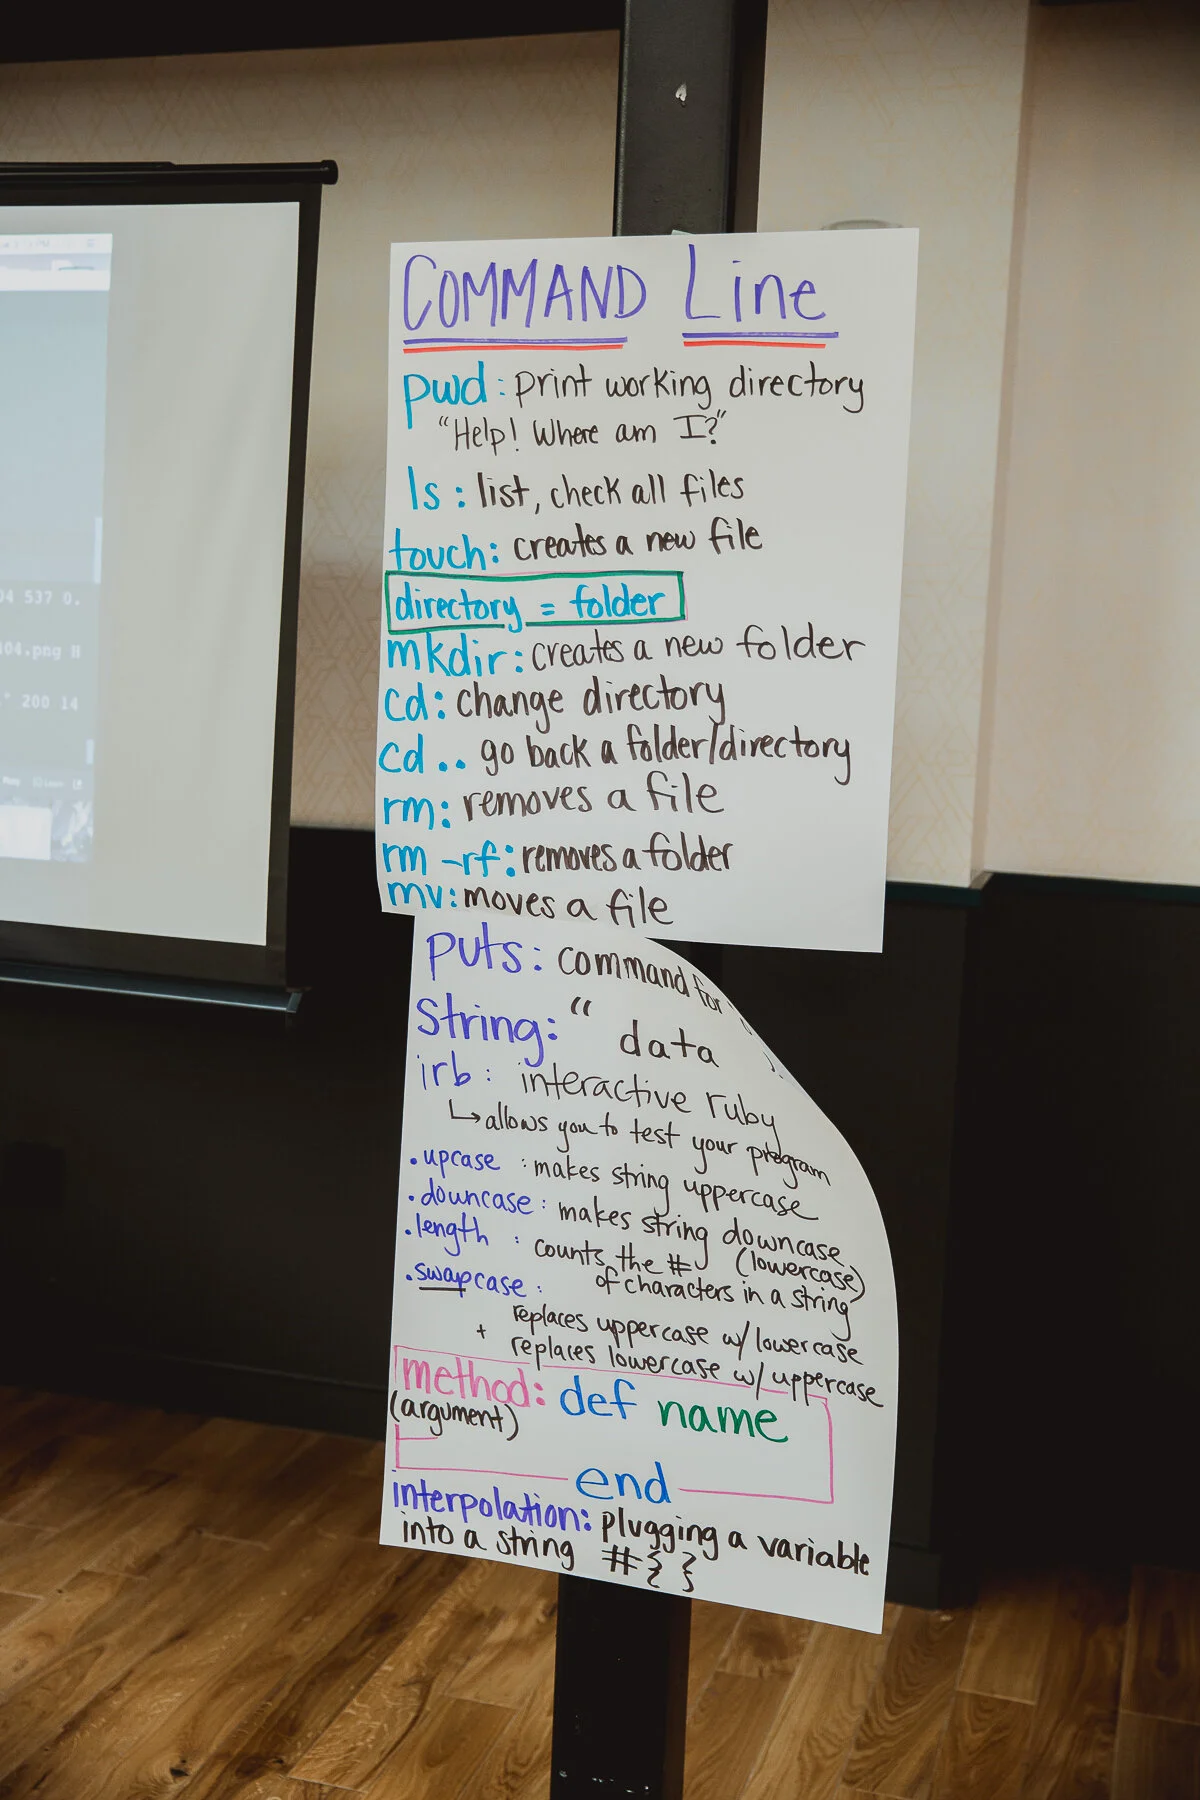 COMMAND Line
pwd: print working directory
"Help! Where am I?"
ls: list, check all files
touch: creates a new file
directory = folder
mkdir: creates a new folder
cd: change directory
cd.. go back a folder/directory
rm: removes a file
rm -rf: removes a folder
mv: moves a file
puts: command for
String: " data
irb: interactive ruby
↳ allows you to test your program
.upcase : makes string uppercase
.downcase: makes string downcase
(lowercase)
.length : counts the #
of characters in a string
.swapcase :
replaces uppercase w/ lowercase
+ replaces lowercase w/ uppercase
method: def name
(argument)
end
interpolation: plugging a variable
into a string #{ }
04 537 0.
404.png H
" 200 14